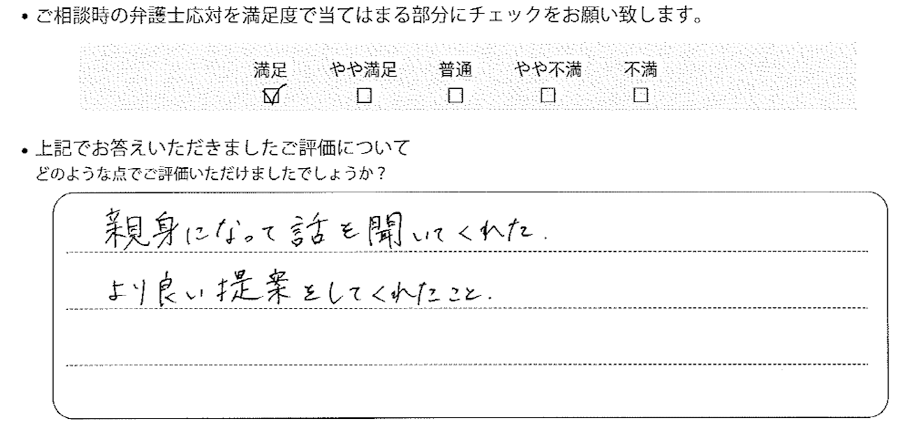 • ご相談時の弁護士応対を満足度で当てはまる部分にチェックをお願い致します。
満足 やや満足 普通 やや不満 不満
☑ □ □ □ □
• 上記でお答えいただきましたご評価について
どのような点でご評価いただけましたでしょうか？
親身になって話を聞いてくれた.
より良い提案をしてくれたこと.